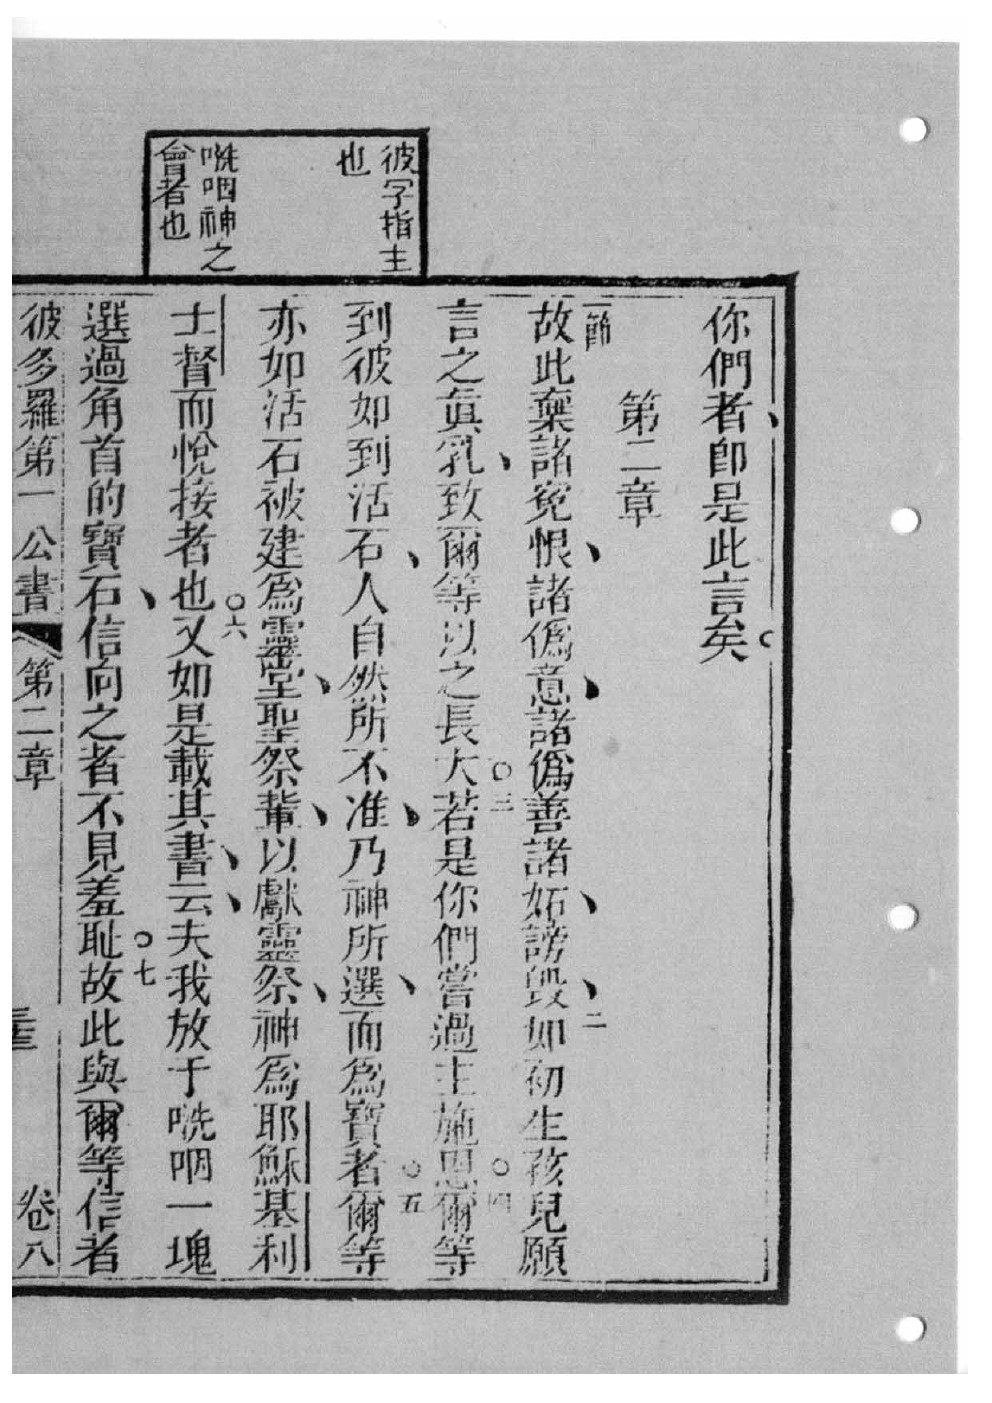 彼字指主
也
㕵咽神之
會者也
你們者卽是此言矣
第二章
一節
故此棄諸寃恨諸僞意諸僞善諸妬謗毀二如初生孩兒願
言之眞乳致爾等以之長大三若是你們嘗過主施恩四爾等
到彼如到活石人自然所不准乃神所選而爲寶者五爾等
亦如活石被建爲靈堂聖祭輩以獻靈祭神爲耶穌基利
士督而悅接者也六又如是載其書云夫我放于㕵咽一塊
選過角首的寶石信向之者不見羞恥七故此與爾等信者
彼多羅第一公書 第二章 卷八